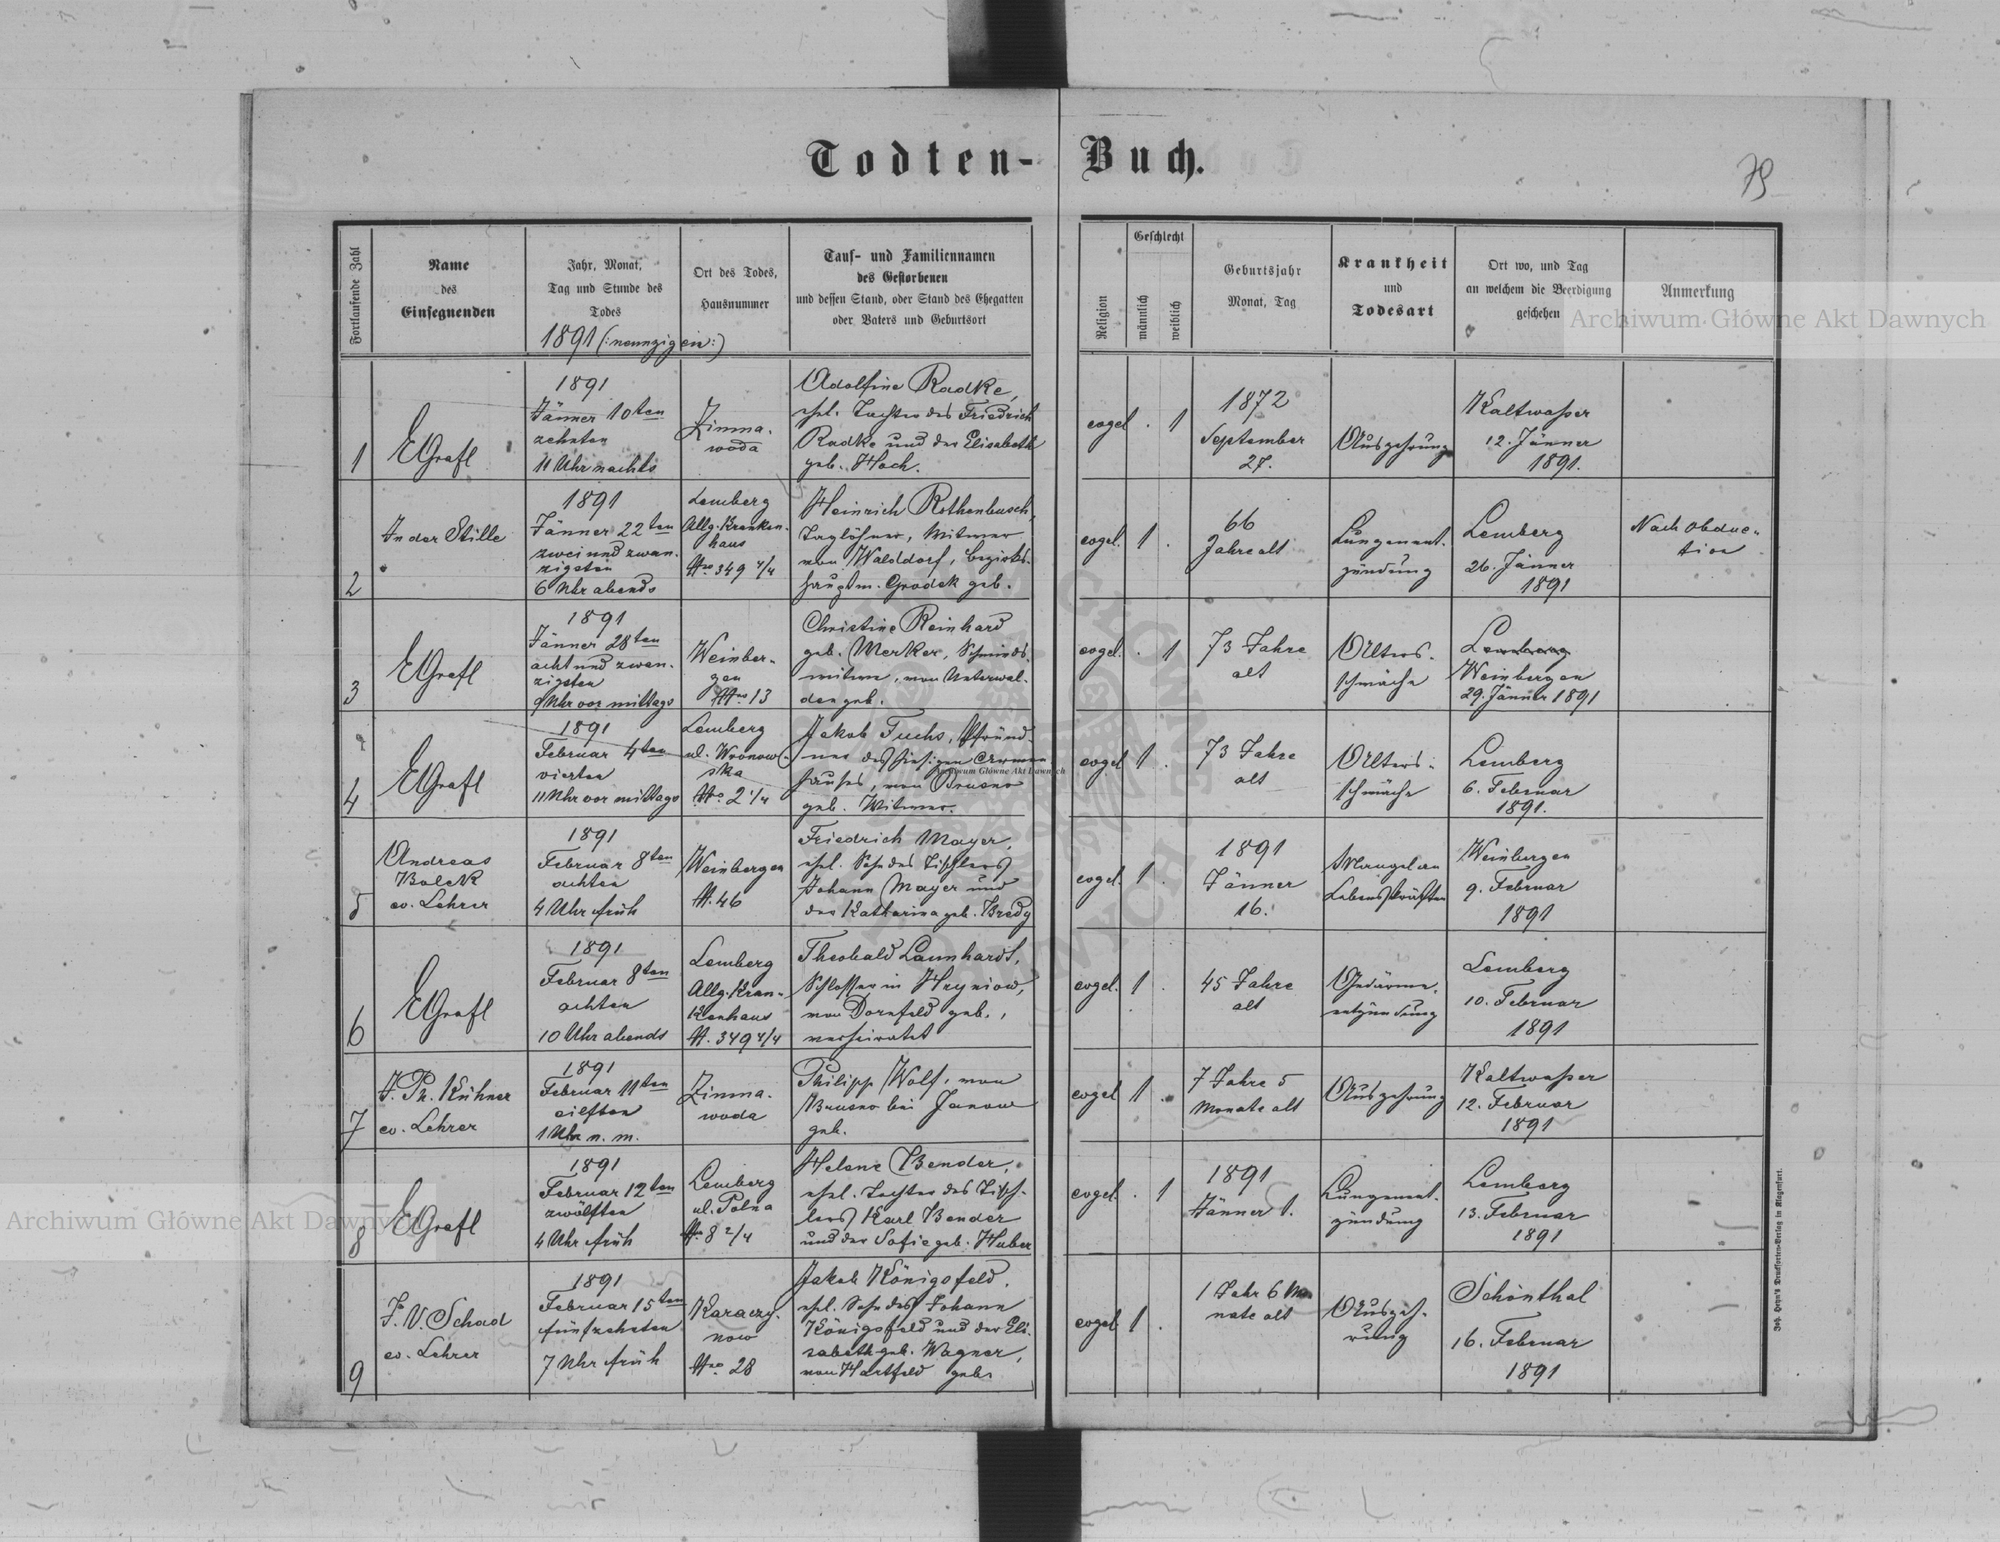 Todten-Buch.
79
Fortlaufende Zahl
Name
des
Einsegnenden
Jahr, Monat,
Tag und Stunde des
Todes
Ort des Todes,
Hausnummer
Tauf- und Familiennamen
des Gestorbenen
und dessen Stand, oder Stand des Ehegatten
oder Vaters und Geburtsort
Religion
Geschlecht
männlich
weiblich
Geburtsjahr
Monat, Tag
Krankheit
und
Todesart
Ort wo, und Tag
an welchem die Beerdigung
geschehen
Anmerkung
Archiwum Główne Akt Dawnych
1891 (:neunzigein:)
1
EGrafl
1891
Jänner 10ten
zehnten
11 Uhr nachts
Zimna-
woda
Adolfine Radke,
ehel. Tochter des Friedrich
Radke und der Elisabeth
geb. Hoch.
evgel
. 1
1872
September
27.
Auszehrung
Kaltwaßer
12. Jänner
1891.
2
In der Stille
1891
Jänner 22ten
zwei und zwan-
zigsten
6 Uhr abends
Lemberg
Allg. Kranken-
haus
Nro 349 4/4
Heinrich Rothenbusch,
Taglöhner, Witwer
von Walddorf, Bezirks-
hauptm. Grodek geb.
evgel.
1 .
66
Jahre alt
Lungenent-
zündung
Lemberg
26. Jänner
1891
Nach Obduc-
tion
3
EGrafl
1891
Jänner 28ten
acht und zwan-
zigsten
9 Uhr vor mittags
Weinber-
gen
Nro 13
Christine Reinhard
geb. Merker, Schmieds-
witwe, von Unterwal-
den geb.
evgel.
. 1
73 Jahre
alt
Alters-
schwäche
Lemberg
Weinbergen
29. Jänner 1891
4
EGrafl
1891
Februar 4ten
vierten
11 Uhr vor mittags
Lemberg
ul. Wronow-
ska
Nro 2 1/4
Jakob Fuchs, Pfründ-
ner des hiesigen Armen
hauses, von Brusno
geb. Witwer.
evgel
1 .
73 Jahre
alt
Alters-
schwäche
Lemberg
6. Februar
1891.
5
Andreas
Bolek
ev. Lehrer
1891
Februar 8ten
achten
4 Uhr früh
Weinbergen
N. 46
Friedrich Mayer,
ehel. Sohn des Tischlers
Johann Mayer und
der Katharina geb. Bredy
evgel.
1 .
1891
Jänner
16.
Mangel an
Lebenskräften
Weinbergen
9. Februar
1891
6
EGrafl
1891
Februar 8ten
achten
10 Uhr abends
Lemberg
Allg. Kran-
kenhaus
N. 349 4/4
Theobald Launhardt,
Schlosser in Hryniow,
von Dornfeld geb.,
verheiratet
evgel.
1 .
45 Jahre
alt
Gedärme-
entzündung
Lemberg
10. Februar
1891
7
J. Ph. Kühner
ev. Lehrer
1891
Februar 11ten
eilften
1 Uhr n. m.
Zimna-
woda
Philipp Wolf, von
Brusno bei Janow
geb.
evgel
1 .
7 Jahre 5
Monate alt
Auszehrung
Kaltwaßer
12. Februar
1891
8
EGrafl
1891
Februar 12ten
zwölften
4 Uhr früh
Lemberg
ul. Polna
N. 8 2/4
Helene Bender,
ehel. Tochter des Tisch-
lers Karl Bender
und der Sofie geb. Huber
evgel.
. 1
1891
Jänner 1.
Lungenent-
zündung
Lemberg
13. Februar
1891
9
J. V. Schad
ev. Lehrer
1891
Februar 15ten
fünfzehnten
7 Uhr früh
Karaczy-
now
Nro 28
Jakob Königsfeld,
ehel. Sohn des Johann
Königsfeld und der Eli-
sabeth geb. Wagner,
von Hartfeld geb.
evgel
1 .
1 Jahr 6 Mo
nate alt
Auszeh-
rung
Schönthal
16. Februar
1891
Archiwum Główne Akt Dawnych
Archiwum Główne Akt Dawnych
Joh. Heyn's Drucksorten-Verlag in Klagenfurt.